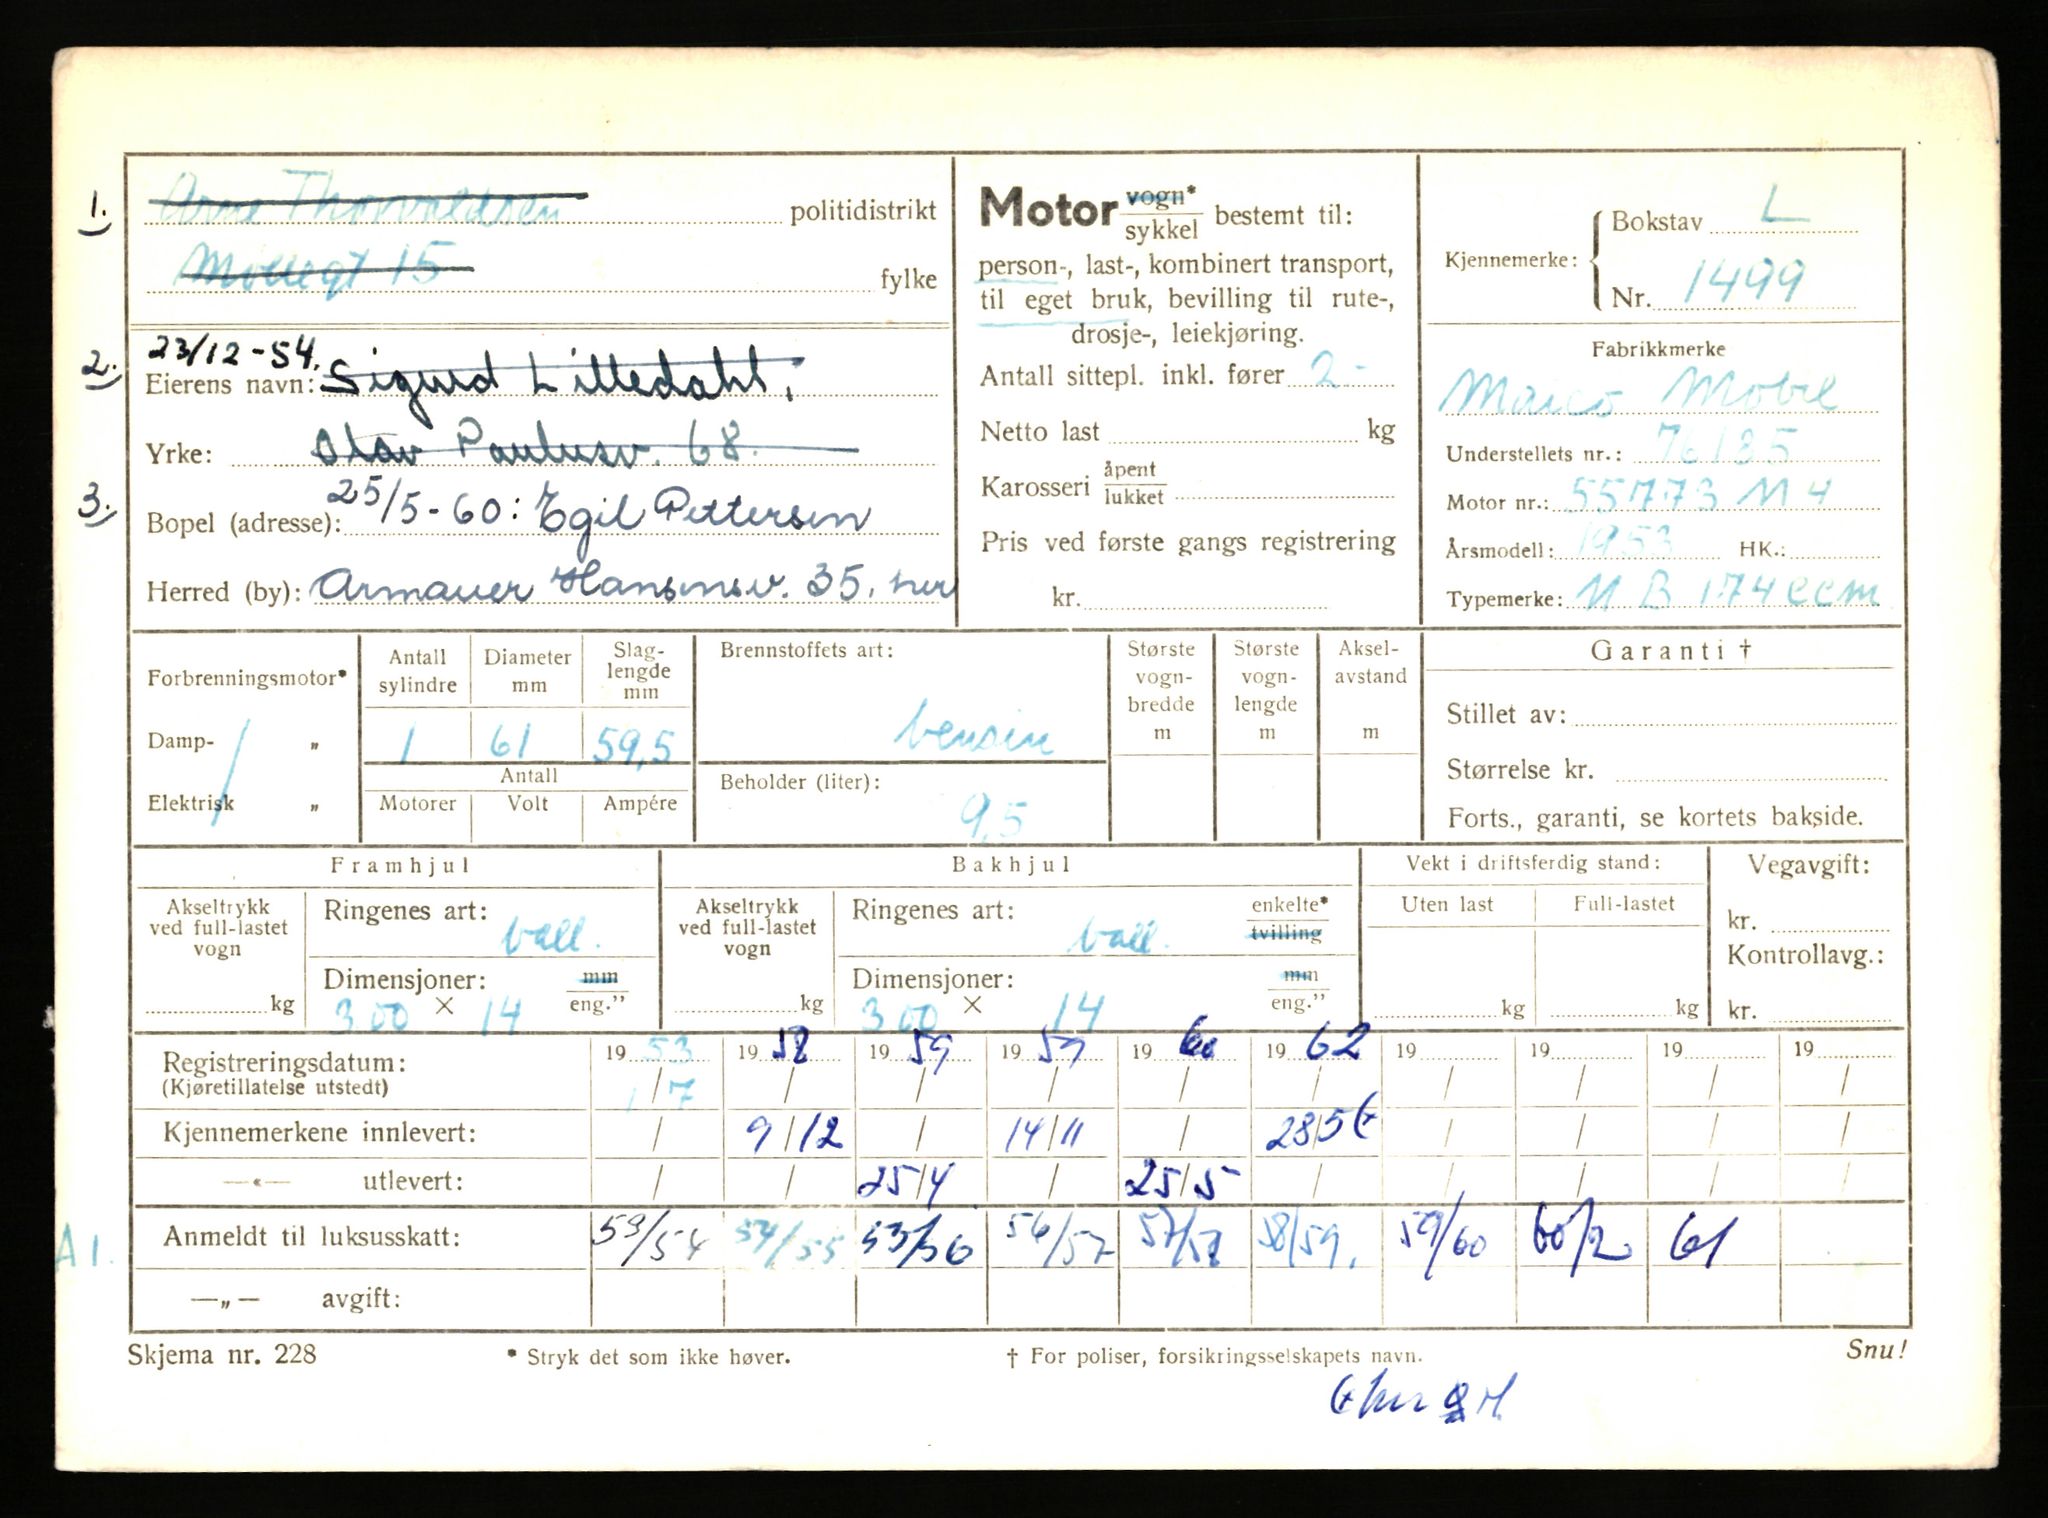 1. Arne Thorvaldsen politidistrikt
Møllegt 15 fylke
2. 23/12-54.
Eierens navn: Sigurd Lilledahl,
Yrke: Olav Paulusv. 68.
3. 25/5-60: Egil Pettersen
Bopel (adresse):
Herred (by): Armauer Hansensv. 35, her
Motor vogn* sykkel bestemt til:
person-, last-, kombinert transport,
til eget bruk, bevilling til rute-,
drosje-, leiekjøring.
Antall sittepl. inkl. fører 2-
Netto last kg
Karosseri åpent lukket
Pris ved første gangs registrering
kr.
Kjennemerke: Bokstav L
Nr. 1499
Fabrikkmerke
Maico Mobil
Understellets nr.: 76135
Motor nr.: 55773 M 4
Årsmodell: 1953 HK.:
Typemerke: M B 174 ccm
Forbrenningsmotor*
Damp- „
Elektrisk „
Antall sylindre 1
Diameter mm 61
Slag-lengde mm 59,5
Antall
Motorer Volt Ampére
Brennstoffets art:
bensin
Beholder (liter):
9,5
Største vogn-bredde m
Største vogn-lengde m
Aksel-avstand m
Garanti †
Stillet av:
Størrelse kr.
Forts., garanti, se kortets bakside.
Framhjul
Akseltrykk ved full-lastet vogn kg
Ringenes art: ball.
Dimensjoner: mm eng."
300 × 14
Bakhjul
Akseltrykk ved full-lastet vogn kg
Ringenes art: ball. enkelte* tvilling
Dimensjoner: mm eng."
300 × 14
Vekt i driftsferdig stand:
Uten last Full-lastet
kg kg
Vegavgift:
kr.
Kontrollavg.:
kr.
Registreringsdatum: 19 53 19 58 19 59 19 59 19 60 19 62 19 19 19 19
(Kjøretillatelse utstedt) 1/7 / / / / / / / / /
Kjennemerkene innlevert: / 9/12 / 14/11 / 28/5 / / / /
—«— utlevert: / / 25/4 / 25/5 / / / / /
A1. Anmeldt til luksusskatt: 53/54 54/55 53/56 56/57 57/58 58/59. 59/60 60/2 61
—„— avgift:
Skjema nr. 228 * Stryk det som ikke høver. † For poliser, forsikringsselskapets navn. Snu!